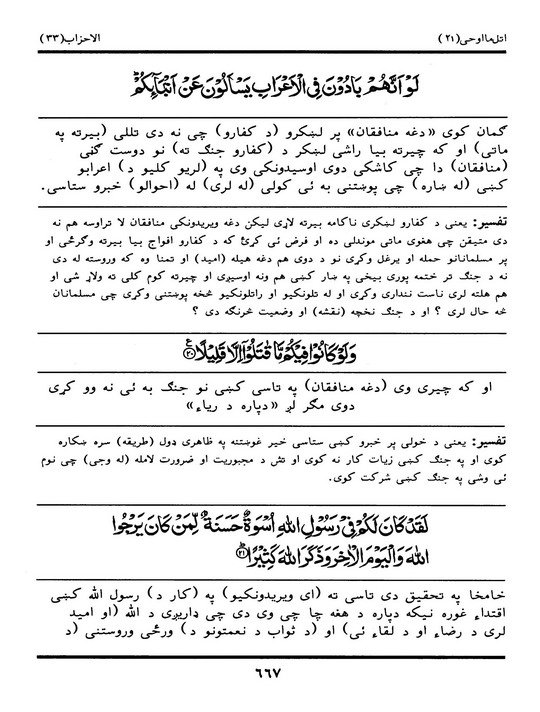 الاحزاب(٣٣) اتل ماأوحی(٢١)
لَوْ اَنَّهُمْ بَادُوْنَ فِی الْاَعْرَابِ یَسْاَلُوْنَ عَنْ اَنْۢبَآىِٕكُمْ ؕ
ګمان کوی «دغه منافقان» پر لښکرو (د کفارو) چی نه دی تللی (بیرته په
ماتی) او که چیرته بیا راشی لښکر د (کفارو جنگ ته) نو دوست ګڼی
(منافقان) دا چی کاشکی دوی اوسیدونکی وی په (لریو کلیو د) اعرابو
کښی (له ښاره) چی پوښتنی به ئی کولی (له لری) له (احوالو) خبرو ستاسی.
تفسیر: یعنی د کفارو لښکری ناکامه بیرته لاړی لیکن دغه ویریدونکی منافقان لا تراوسه هم نه
دی متیقن چی هغوی ماتی موندلی ده او فرض ئی کړئ که د کفارو افواج بیا بیرته وګرځی او
پر مسلمانانو حمله او یرغل وکړی نو د دوی هم دغه هیله (امید) او تمنا وه که وروسته له دی
نه د جنگ تر ختمه پوری بیخی په ښار کښی هم ونه اوسیږی او چیرته کوم کلی ته ولاړ شی او
هم هلته لری ناست ننداری وکړی او له تلونکیو او راتلونکیو څخه پوښتنی وکړی چی مسلمانان
څه حال لری ؟ او د جنگ نخچه (نقشه) او وضعیت څرنگه دی ؟
وَلَوْ كَانُوْا فِیْكُمْ مَّا قٰتَلُوْۤا اِلَّا قَلِیْلًا ۠﴿٢٠﴾
او که چیری وی (دغه منافقان) په تاسی کښی نو جنگ به ئی نه وو کړی
دوی مگر لږ «دپاره د ریاء»
تفسیر: یعنی د خولی پر خبرو کښی ستاسی خیر غوښتنه په ظاهری ډول (طریقه) سره ښکاره
کوی او په جنگ کښی زیات کار نه کوی او تش د مجبوریت او ضرورت لامله (له وجی) چی نوم
ئی وشی په جنگ کښی شرکت کوی.
لَقَدْ كَانَ لَكُمْ فِیْ رَسُوْلِ اللّٰهِ اُسْوَةٌ حَسَنَةٌ لِّمَنْ كَانَ یَرْجُوا
اللّٰهَ وَالْیَوْمَ الْاٰخِرَ وَذَكَرَ اللّٰهَ كَثِیْرًا ؕ﴿٢١﴾
خامخا په تحقیق دی تاسی ته (ای ویریدونکیو) په (کار د) رسول الله کښی
اقتداء غوره نیکه دپاره د هغه چا چی وی دی چی ډاریږی د الله (او امید
لری د رضاء او د لقاء ئی) او (د ثواب د نعمتونو د) ورځی وروستنی (د
٦٦٧